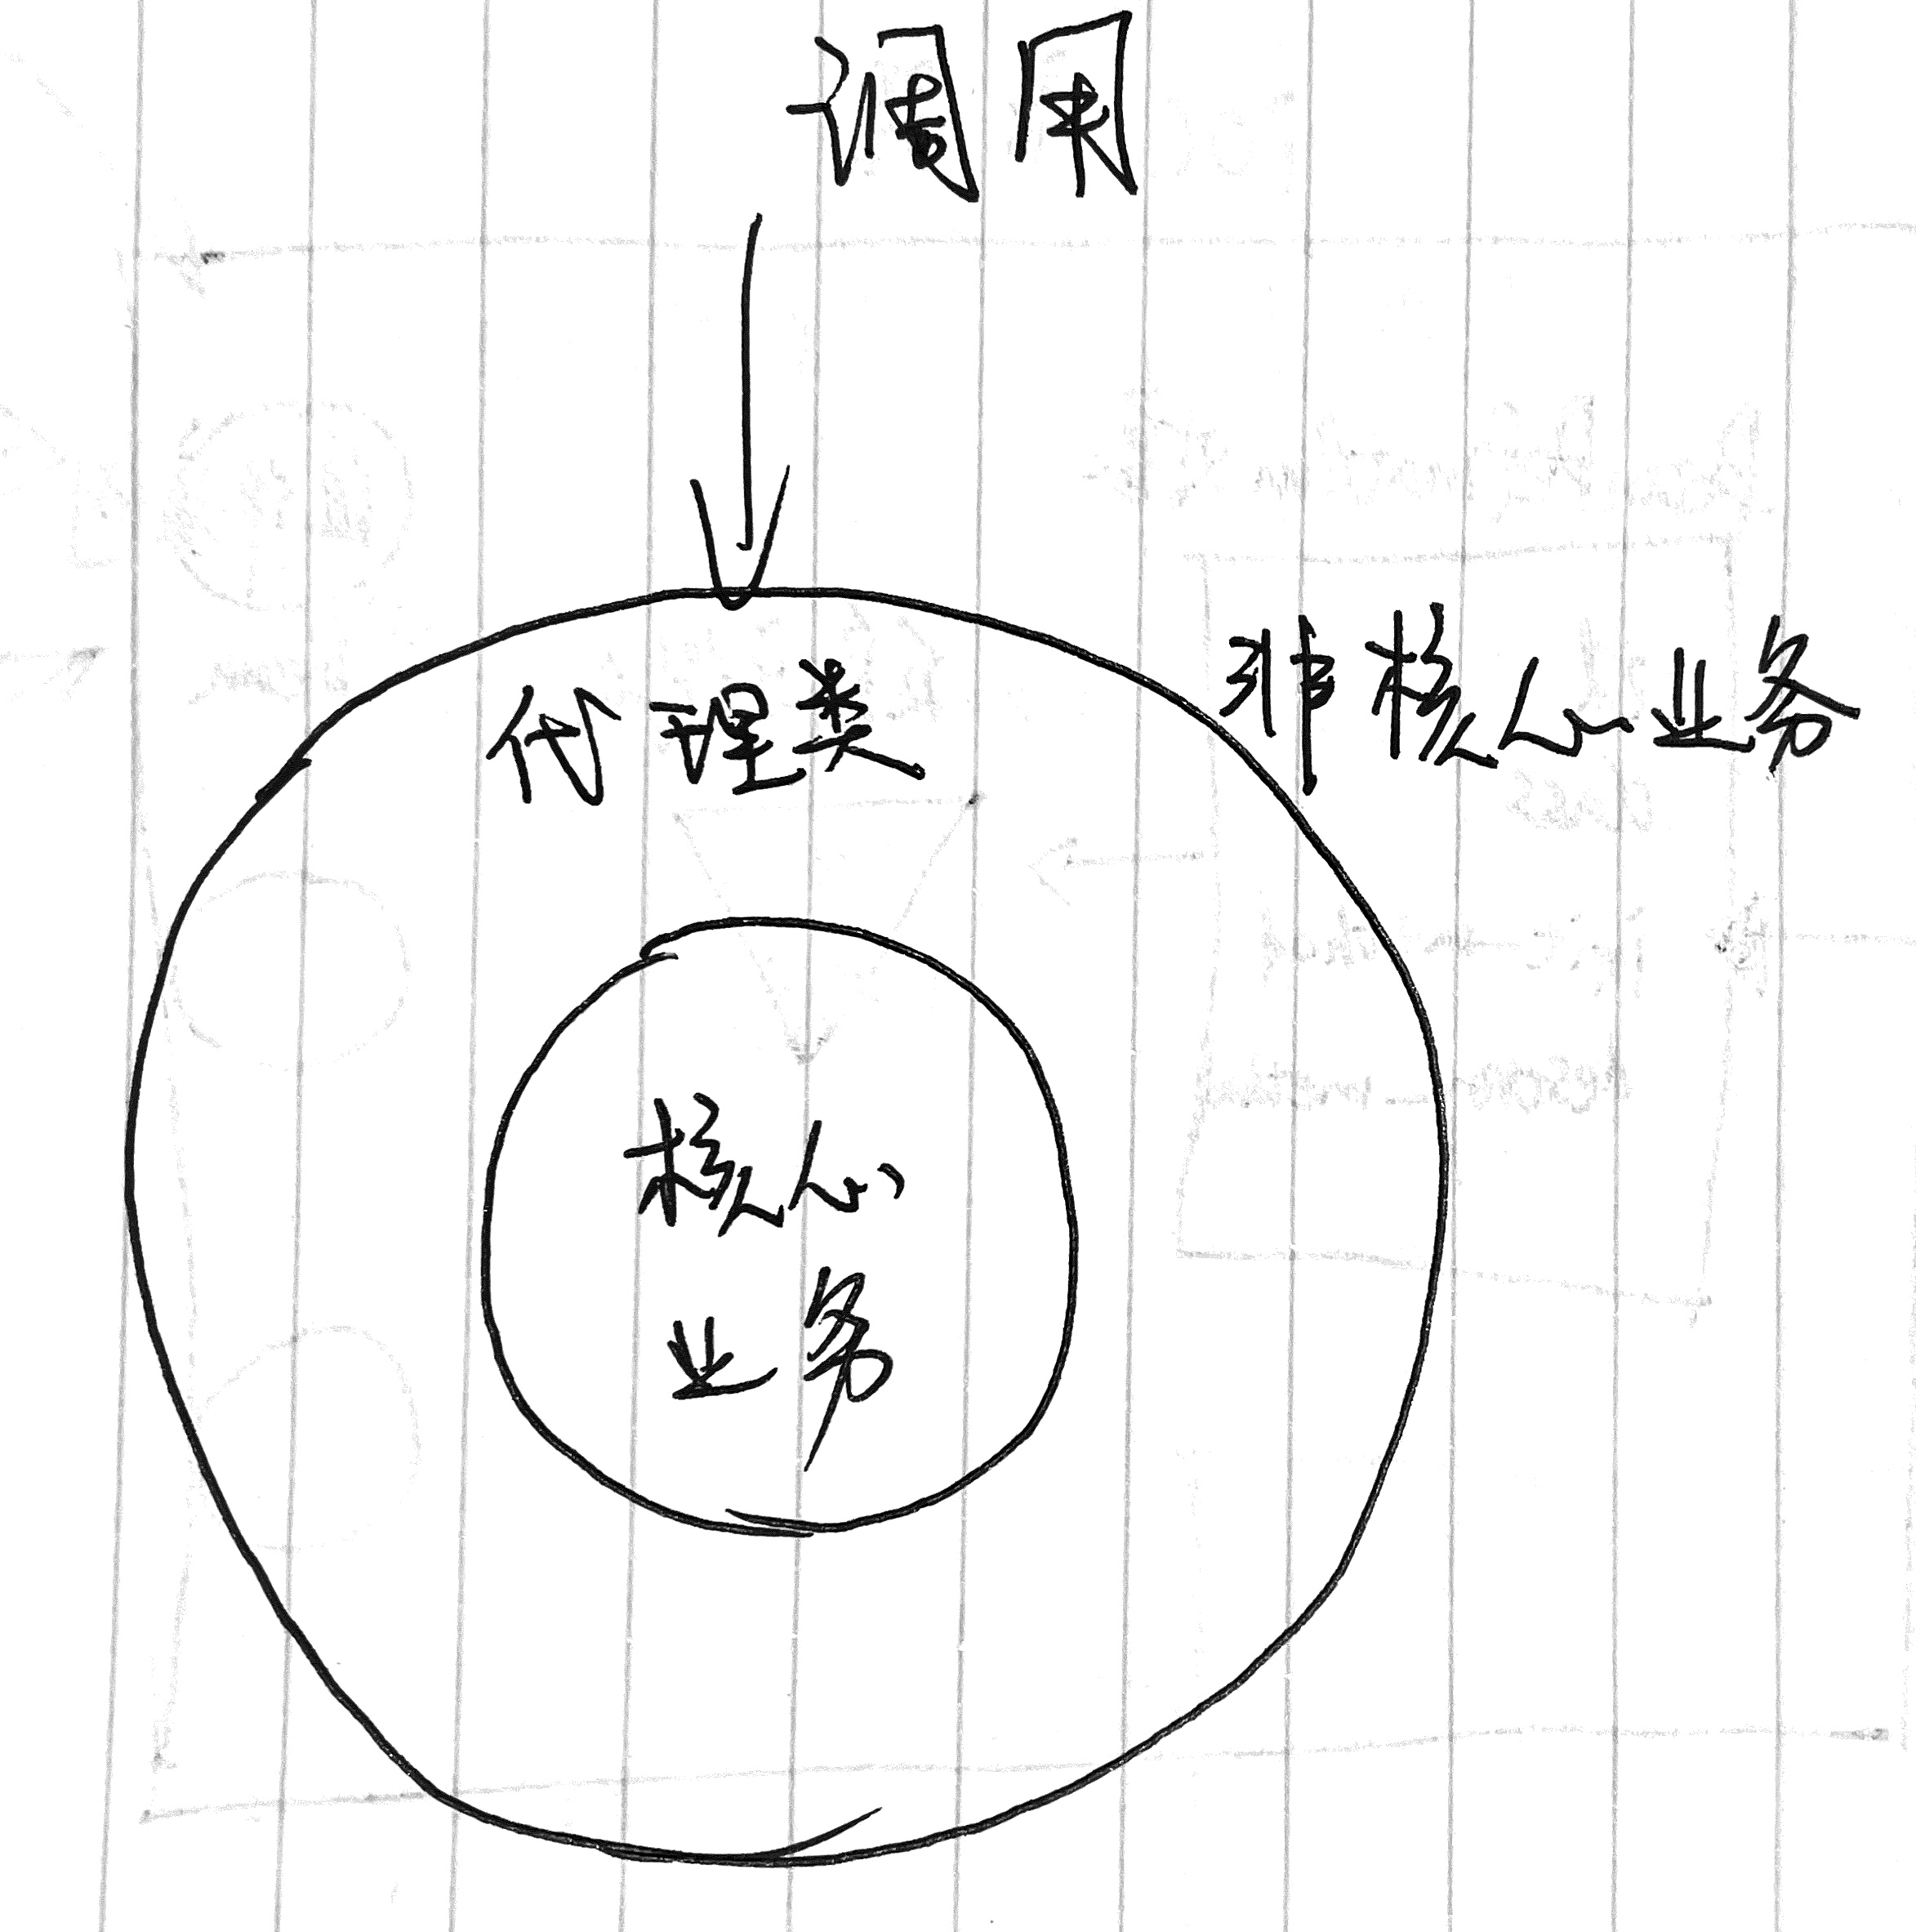 调用
代理类
非核心业务
核心
业务